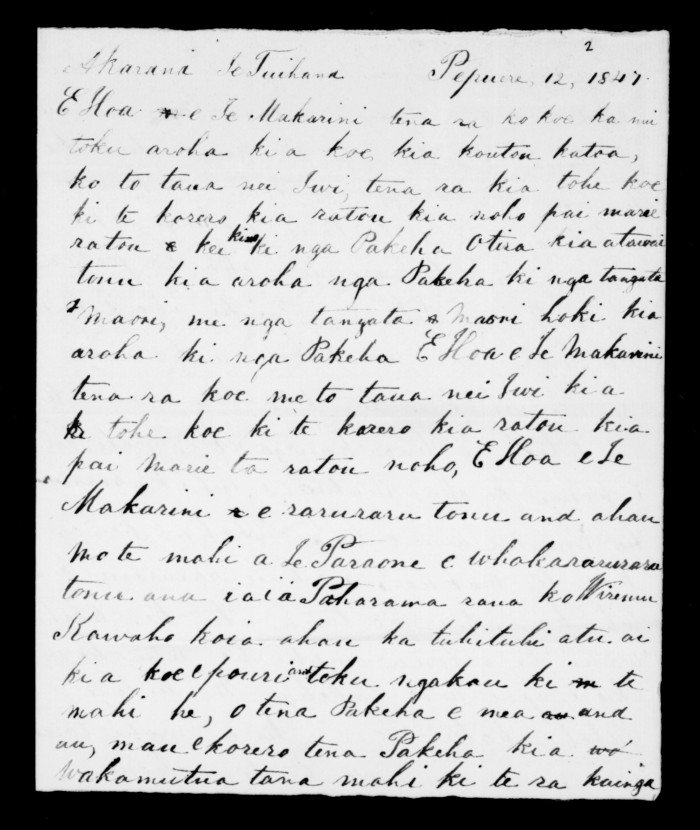 2
Akarana Te Tuihana Pepuere, 12, 1847.
E Hoa e Te Makarini tena ra ko koe ka nui
toku aroha ki a koe, kia koutou katoa,
ko to taua nei Iwi, tena ra kia tohe koe
ki te korero kia ratou kia noho pai marie
ratou kei kino ki nga Pakeha Otira kia atawai
tonu kia aroha nga Pakeha ki nga tangata
Maori, me nga tangata Maori hoki kia
aroha ki nga Pakeha E Hoa e Te Makarini
tena ra koe me to taua nei Iwi kia
tohe koe ki te korero kia ratou kia
pai marie ta ratou noho, E Hoa e Te
Makarini e raruraru tonu and ahau
mo te mahi a Te Paraone e whakararuraru
tonu ana i a ia Paharama raua ko Wiremu
Kawaho koia ahau ka tuhituhi atu ai
ki a koe e pouri ana toku ngakau ki te
mahi he, o tena Pakeha e mea and
au, mau e korero tena Pakeha kia
wakamutua tana mahi ki te ra kainga,